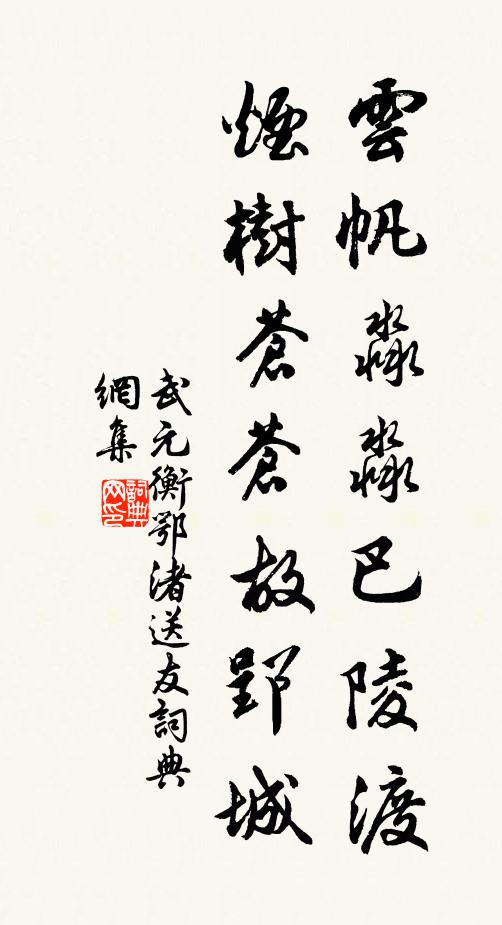 雲帆淼淼巴陵渡
煙樹蒼蒼故郢城
武元衡鄂渚送友詞典
網集
詞典
网记